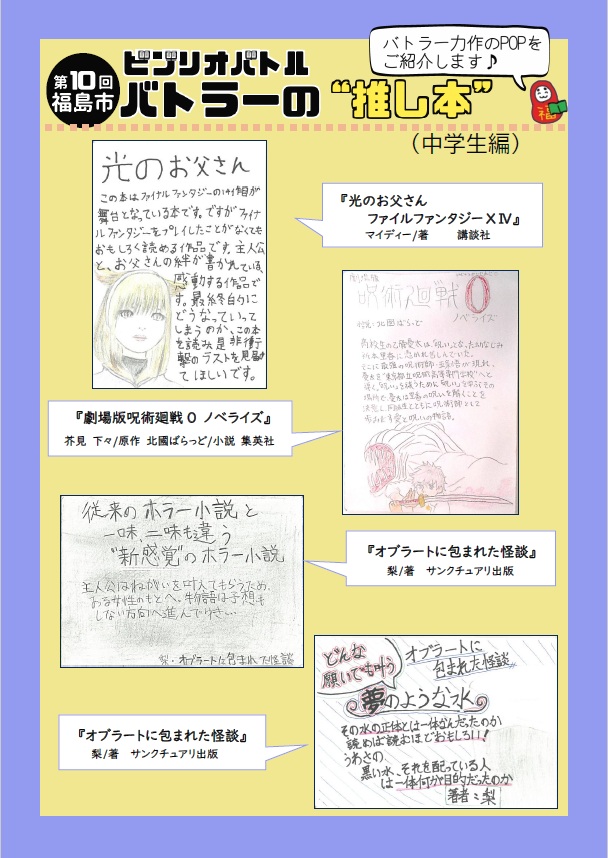 第10回
福島市
ビブリオバトル
バトラーの“推し本”
バトラー力作のPOPを
ご紹介します♪
福
（中学生編）
光のお父さん
この本はファイナルファンタジーの14作目が
舞台となっている本です。ですがファイナ
ルファンタジーをプレイしたことがなくても
おもしろく読める作品です。主人公
と、お父さんの絆が書かれている、
感動する作品で
す。最終的に
どうなっていって
しまうのか、この本
を読み是非衝
撃のラストを見届け
てほしいです。
『光のお父さん
ファイルファンタジーⅩⅣ』
マイディー/著 講談社
劇場版
呪術廻戦0
ノベライズ
小説:北國ばらっど
高校生の乙骨憂太は、呪いとなった幼なじみ
『劇場版呪術廻戦 0 ノベライズ』
芥見 下々/原作 北國ばらっど/小説 集英社
従来のホラー小説と
一味、二味も違う
“新感覚”のホラー小説
主人公はねがいを叶えてもらうため、
ある女性のもとへ。物語は予想も
しない方向へ進んでゆき…
梨・オブラートに包まれた怪談
『オブラートに包まれた怪談』
梨/著 サンクチュアリ出版
どんな
願いでも叶う
オブラートに
包まれた怪談
夢のような水
その水の正体とは一体なんだったのか
読めば読むほどおもしろい!
うわさの
黒い水、それを配っている人
は一体何が目的だったのか
著者:梨
『オブラートに包まれた怪談』
梨/著 サンクチュアリ出版